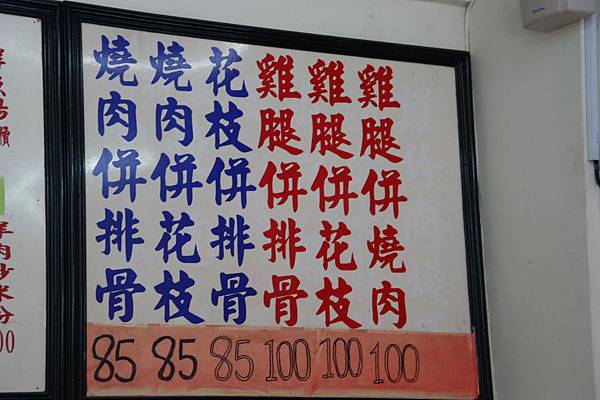 雞腿併燒肉
雞腿併花枝
雞腿併排骨
花枝併排骨
燒肉併花枝
燒肉併排骨
85 85 85 100 100 100
羊肉炒米粉
00